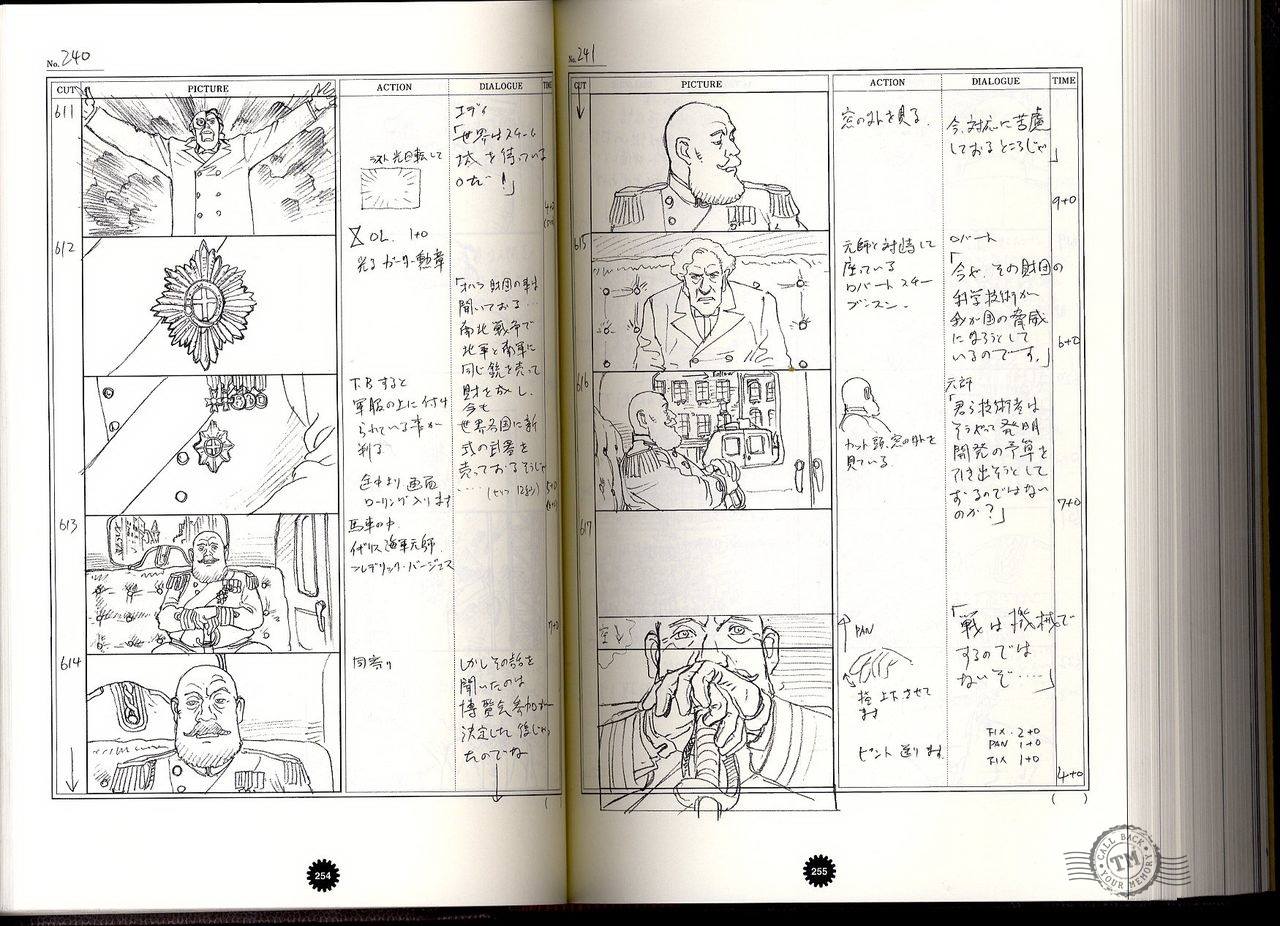 No. 240
CUT
PICTURE
ACTION
DIALOGUE
611
ラスト 光回転して
エディ
「世界はスチーム
城を待っている
のだ!」
612
OL. 1+0
光る ガーター勲章
「オハラ財団の事は
聞いておる…
南北戦争で
北軍と南軍に
同じ銃を売って
財を成し、
今も
世界各国に新
式の武器を
売っておるそうじゃ
(セリフ 12秒)
T.Bすると
軍服の上に付け
られている事が
判る
途中より 画面
ローリング入ります
613
馬車の中
イギリス海軍元師
フレデリック・バージェス
7+0
614
同寄り
しかしその話を
聞いたのは
博覧会参加が
決定した後じゃっ
たのでな
254
No. 241
CUT
PICTURE
ACTION
DIALOGUE
TIME
窓の外を見る。
今、対応に苦慮
しておるところじゃ」
9+0
615
元師と対峙して
座っている
ロバート スチー
ブンスン。
ロバート
「今や、その財団の
科学技術が
我が国の脅威
になろうとして
いるのです。」
6+0
616
カット頭、窓の外を
見ている。
元師
「君ら技術者は
そうやって発明
開発の予算を
引き出そうとして
おるのではない
のか?」
7+0
617
PAN
指 上下させて
ます
ピント送ります。
「戦は機械で
するのでは
ないぞ……」
FIX. 2+0
PAN 1+0
FIX 1+0
4+0
( )
255
CALL BACK
TM
YOUR MEMORY